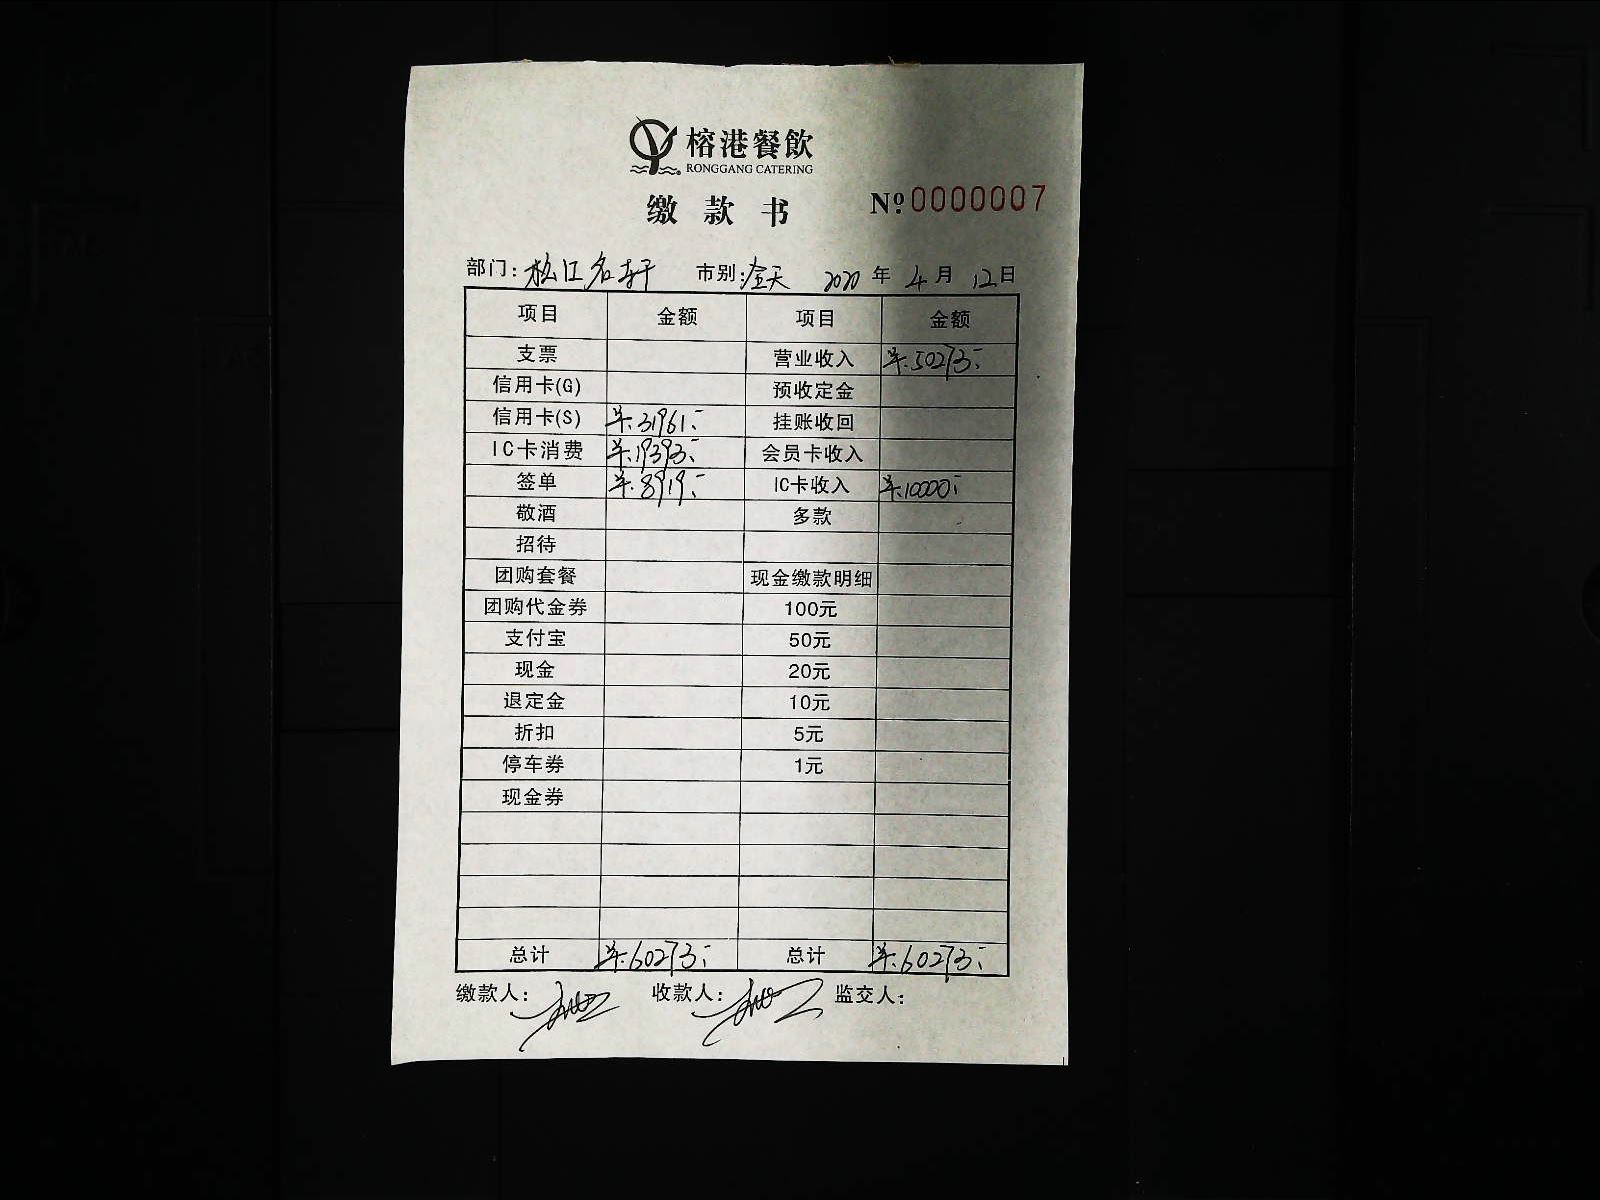 榕港餐飲
RONGGANG CATERING
缴款书 Nº 0000007
部门: 松江名轩 市别: 全天 2020年4月12日
项目 金额 项目 金额
支票 营业收入 ¥:50273.-
信用卡(G) 预收定金
信用卡(S) ¥:31961.- 挂账收回
IC卡消费 ¥:19393.- 会员卡收入
签单 ¥:8919.- IC卡收入 ¥:10000.-
敬酒 多款
招待
团购套餐 现金缴款明细
团购代金券 100元
支付宝 50元
现金 20元
退定金 10元
折扣 5元
停车券 1元
现金券
总计 ¥:60273.- 总计 ¥:60273.-
缴款人: 收款人: 监交人: